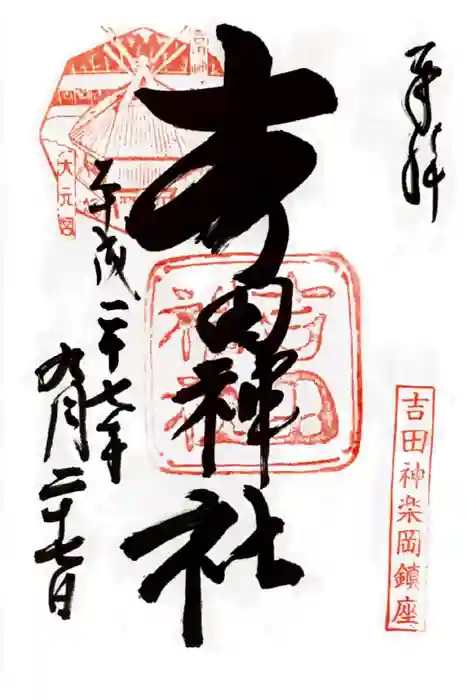 奉拝
吉田神楽岡鎮座
吉田神社
吉田神社
大元宮
平成二十七年
九月二十七日